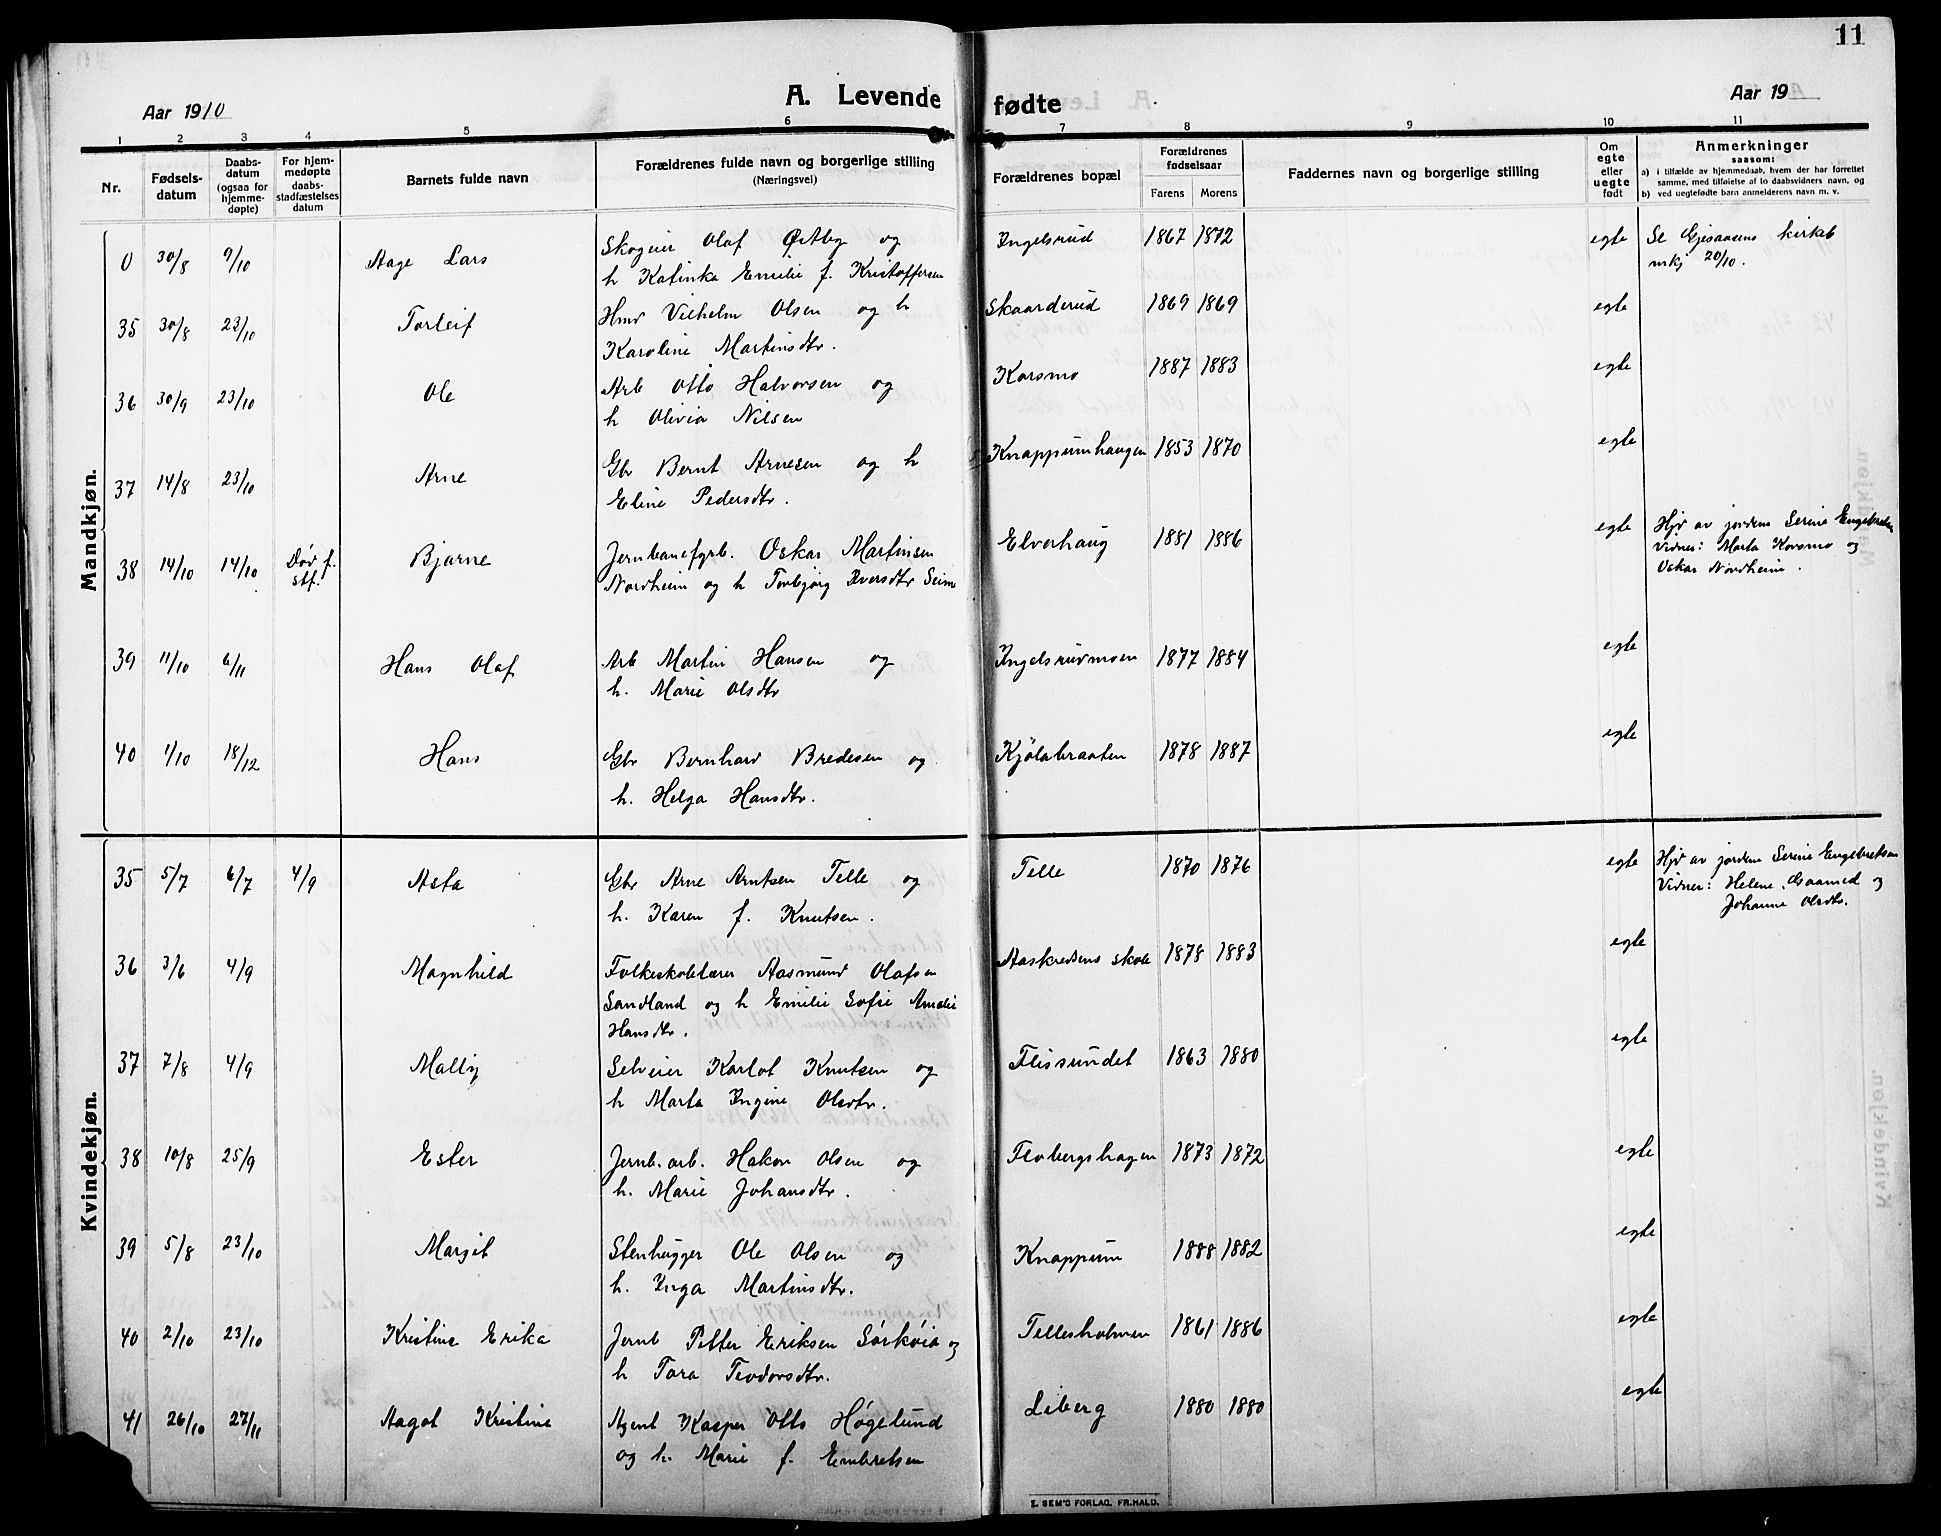 11
Aar 1910
A. Levende fødte
Aar 19
1 2 3 4 5 6 7 8 9 10 11
Nr.
Fødsels-
datum
Daabs-
datum
(ogsaa for
hjemme-
døpte)
For hjem-
medøpte
daabs-
stadfæstelses
datum
Barnets fulde navn
Forældrenes fulde navn og borgerlige stilling
(Næringsvei)
Forældrenes bopæl
Forældrenes
fødselsaar
Farens Morens
Faddernes navn og borgerlige stilling
Om
egte
eller
uegte
født
Anmerkninger
saasom:
a) i tilfælde av hjemmedaab, hvem der har forrettet
samme, med tilføielse af to daabsvidners navn, og
b) ved uegtefødte børn anmelderens navn m. v.
Mandkjøn.
0 30/8 9/10 Aage Lars Skogeier Olaf Østby og Ingelsrud 1867 1872 egte Se Gjesaasens kirkeb
h Katinka Emilie f. Kristoffersen mkj 20/10.
35 30/8 23/10 Torleif Hmd Vilhelm Olsen og h Skaarderud 1869 1869 egte
Karoline Martinsdtr.
36 30/9 23/10 Ole Arb Otto Halvorsen og Korsmo 1887 1883 egte
h Olivia Nilsen
37 14/8 23/10 Arne Gbr Bernt Arnesen og h Knappumhaugen 1853 1870 egte
Eline Pedersdtr.
38 14/10 14/10 Død f. stf. Bjarne Jernbanefgrb. Oskar Martinsen Elverhaug 1881 1886 egte Hjd av jordem Serine Engebretsen
Nordheim og h Torbjørg Iversdtr Seim Vidner: Marta Korsmo og
Oskar Nordheim.
39 11/10 6/11 Hans Olaf Arb Martin Hansen og Ingelsrudmoen 1877 1884 egte
h. Marie Olsdtr
40 1/10 18/12 Hans Gbr Bernhard Bredesen og Kjölabraaten 1878 1887 egte
h. Helga Hansdtr.
Kvindekjøn.
35 5/7 6/7 4/9 Asta Gbr Arne Arntsen Telle og Telle 1870 1876 egte Hjd av jordem Serine Engebretsen
h. Karen f. Knutsen. Vidner: Helene og
Johanne Olsdtr.
36 3/6 4/9 Magnhild Folkeskolelærer Aasmund Olafsen Aaskredsens skole 1878 1883 egte
Sandland og h Emilie Sofie Amalie
Hansdtr.
37 7/8 4/9 Mally Selveier Karlot Knutsen og Flissundet 1863 1880 egte
h Marta Ingine Olsdtr.
38 10/8 25/9 Ester Jernb. arb. Hakon Olsen og Flobergshagen 1873 1872 egte
h. Marie Johansdtr.
39 5/8 23/10 Margit Stenhugger Ole Olsen og Knappum 1888 1882 egte
h. Inga Martinsdtr.
40 2/10 23/10 Kristine Erika Jernb Petter Eriksen Sörköia og Tellesholmen 1861 1886 egte
h Tora Teodorsdtr.
41 26/10 27/11 Aagot Kristine Agent Kasper Otto Høgelund Liberg 1880 1880 egte
og h. Marie f. Embretsen
E. SEM'S FORLAG, FR.HALD.